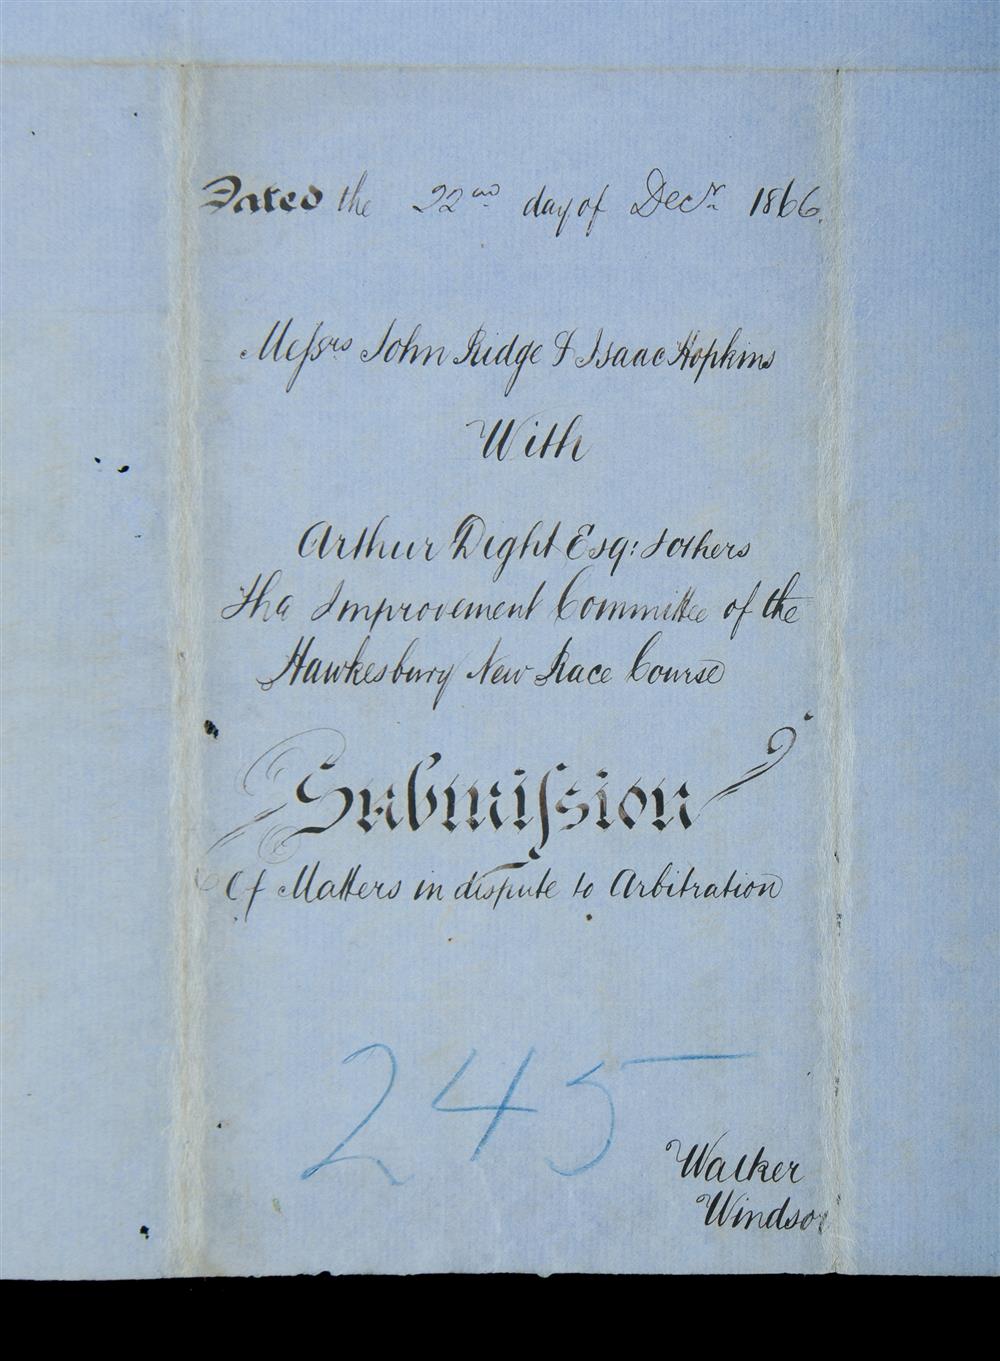 Dated the 22nd day of Decr 1866.
Messrs John Ridge & Isaac Hopkins
With
Arthur Dight Esq: & others
The Improvement Committee of the
Hawkesbury New Race Course
Submission
Of Matters in dispute to Arbitration
245
Walker
Windsor